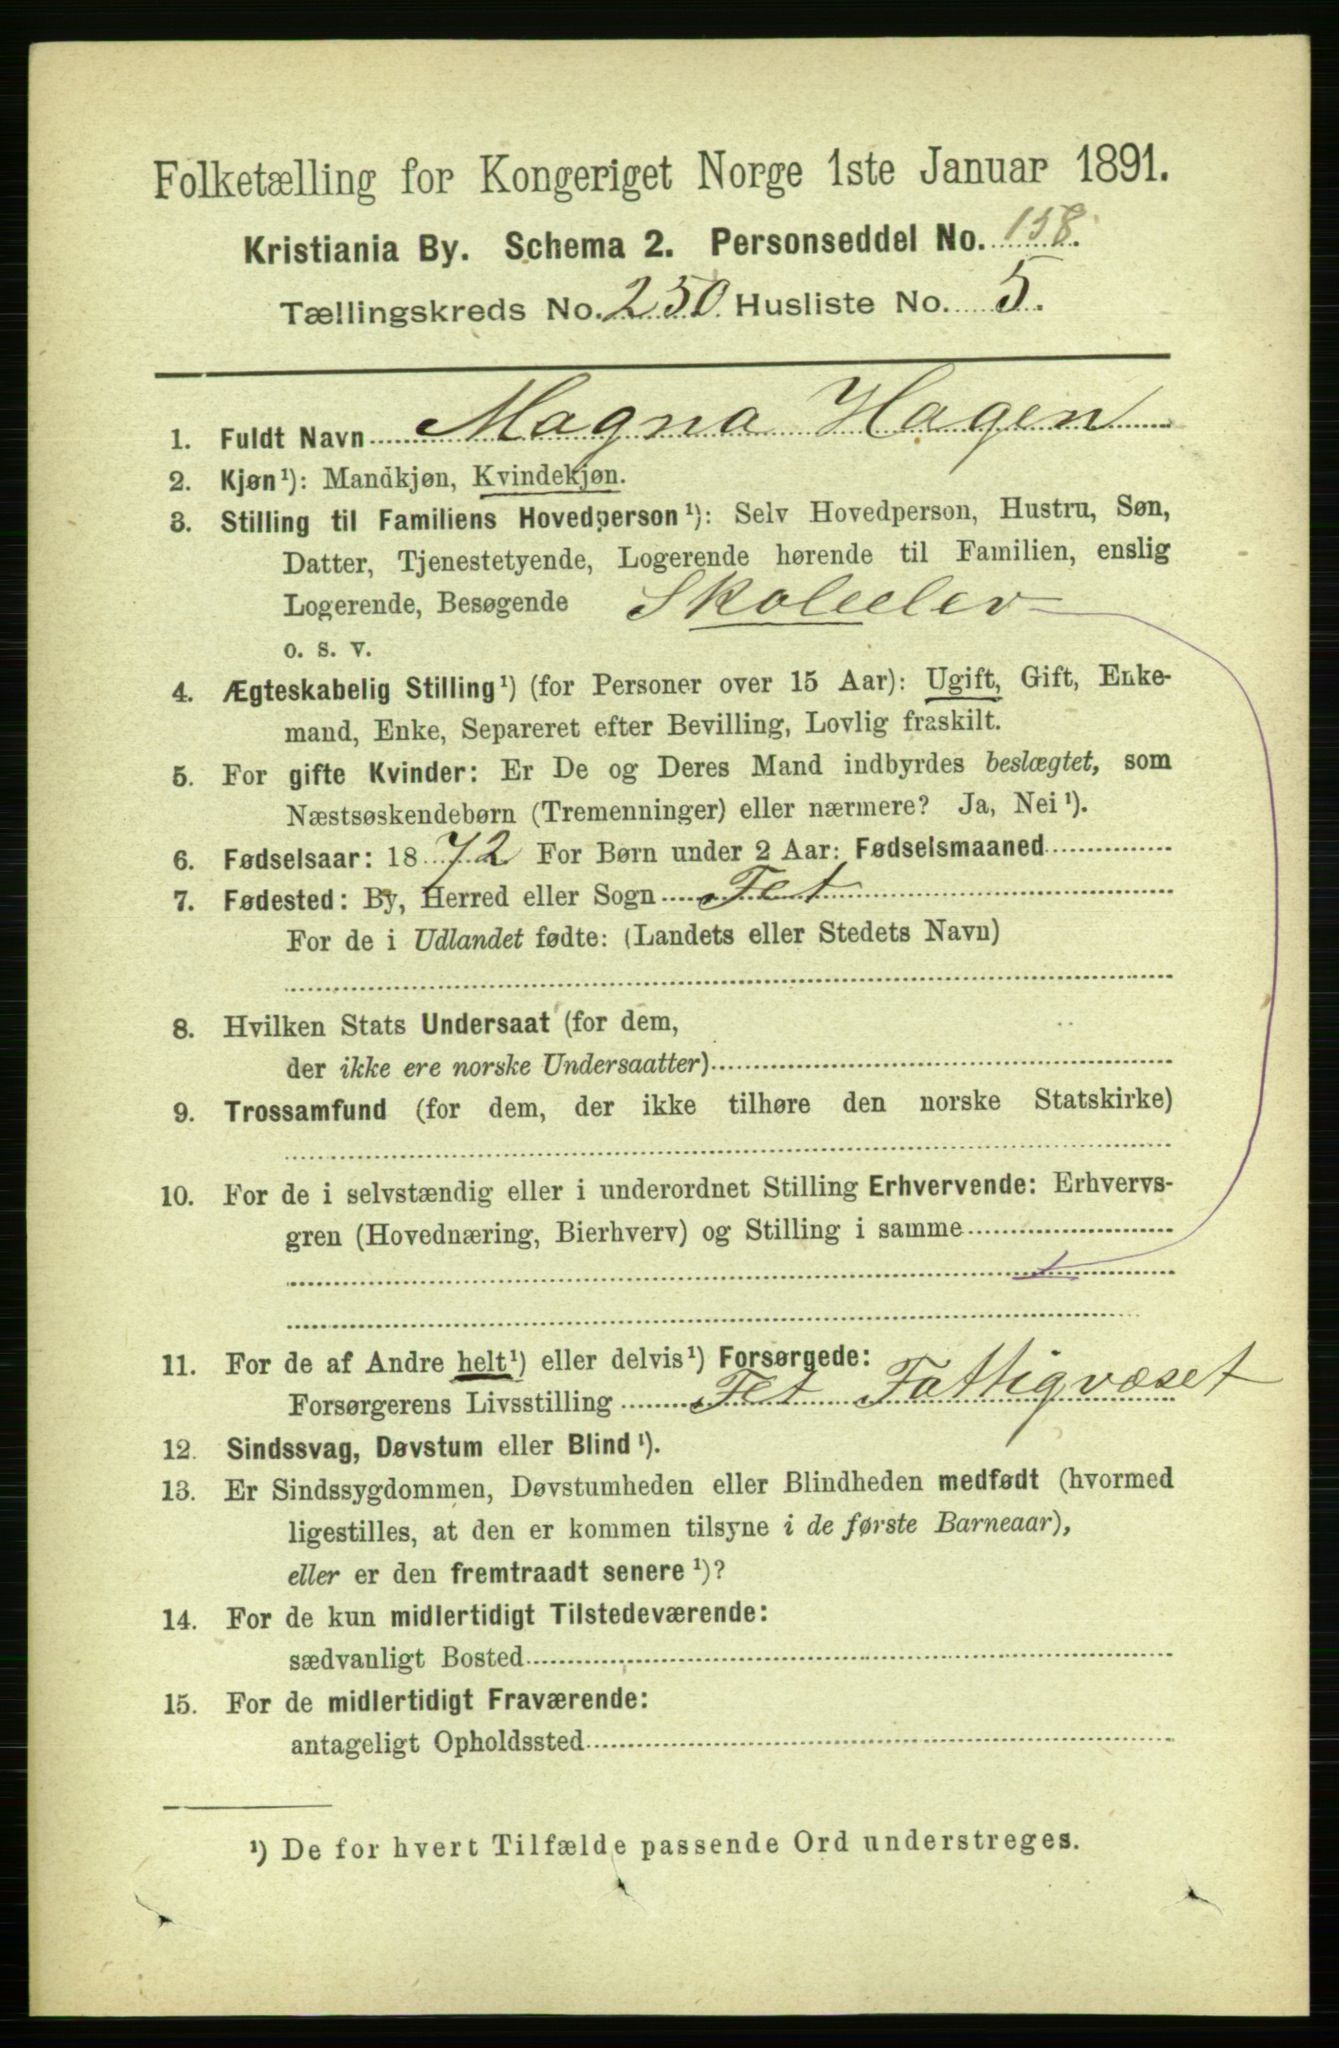 Folketælling for Kongeriget Norge 1ste Januar 1891.
Kristiania By. Schema 2. Personseddel No. 158.
Tællingskreds No. 250 Husliste No. 5.
1. Fuldt Navn Magna Hagen
2. Kjøn¹): Mandkjøn, Kvindekjøn.
3. Stilling til Familiens Hovedperson¹): Selv Hovedperson, Hustru, Søn,
Datter, Tjenestetyende, Logerende hørende til Familien, enslig
Logerende, Besøgende Skoleelev
o. s. v.
4. Ægteskabelig Stilling¹) (for Personer over 15 Aar): Ugift, Gift, Enke-
mand, Enke, Separeret efter Bevilling, Lovlig fraskilt.
5. For gifte Kvinder: Er De og Deres Mand indbyrdes beslægtet, som
Næstsøskendebørn (Tremenninger) eller nærmere? Ja, Nei¹).
6. Fødselsaar: 1872 For Børn under 2 Aar: Fødselsmaaned
7. Fødested: By, Herred eller Sogn Fet
For de i Udlandet fødte: (Landets eller Stedets Navn)
8. Hvilken Stats Undersaat (for dem,
der ikke ere norske Undersaatter)
9. Trossamfund (for dem, der ikke tilhøre den norske Statskirke)
10. For de i selvstændig eller i underordnet Stilling Erhvervende: Erhvervs-
gren (Hovednæring, Bierhverv) og Stilling i samme
11. For de af Andre helt¹) eller delvis¹) Forsørgede:
Forsørgerens Livsstilling Fet Fattigvæset
12. Sindssvag, Døvstum eller Blind¹).
13. Er Sindssygdommen, Døvstumheden eller Blindheden medfødt (hvormed
ligestilles, at den er kommen tilsyne i de første Barneaar),
eller er den fremtraadt senere¹)?
14. For de kun midlertidigt Tilstedeværende:
sædvanligt Bosted
15. For de midlertidigt Fraværende:
antageligt Opholdssted
¹) De for hvert Tilfælde passende Ord understreges.